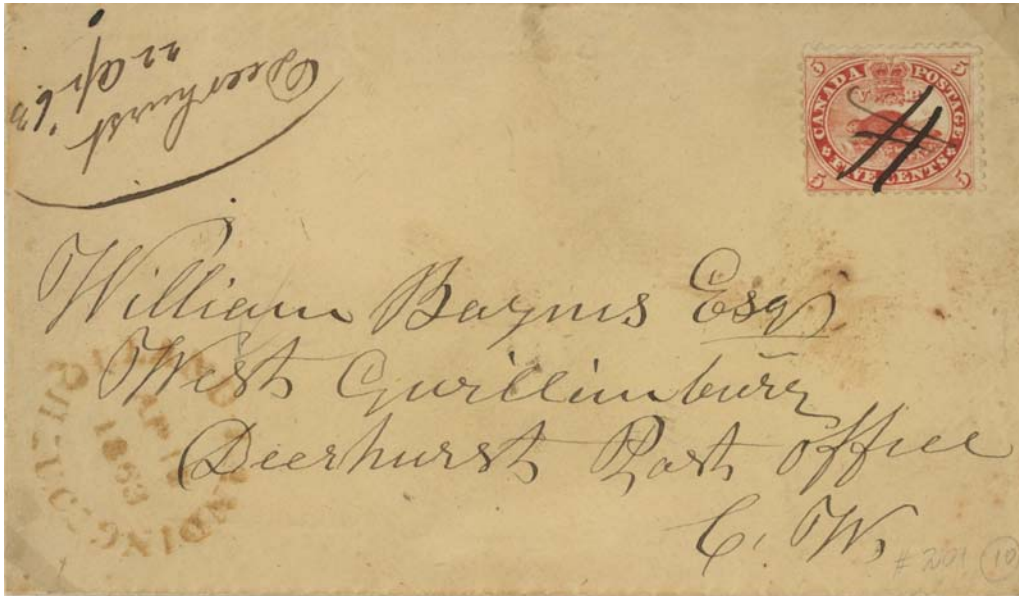 Deerhurst
22 Apl '63
5 CANADA POSTAGE 5
5 FIVE CENTS 5
William Baynes Esq
West Gwillimbury
Deerhurst Post Office
C. W.
AP
1863
# 201 10